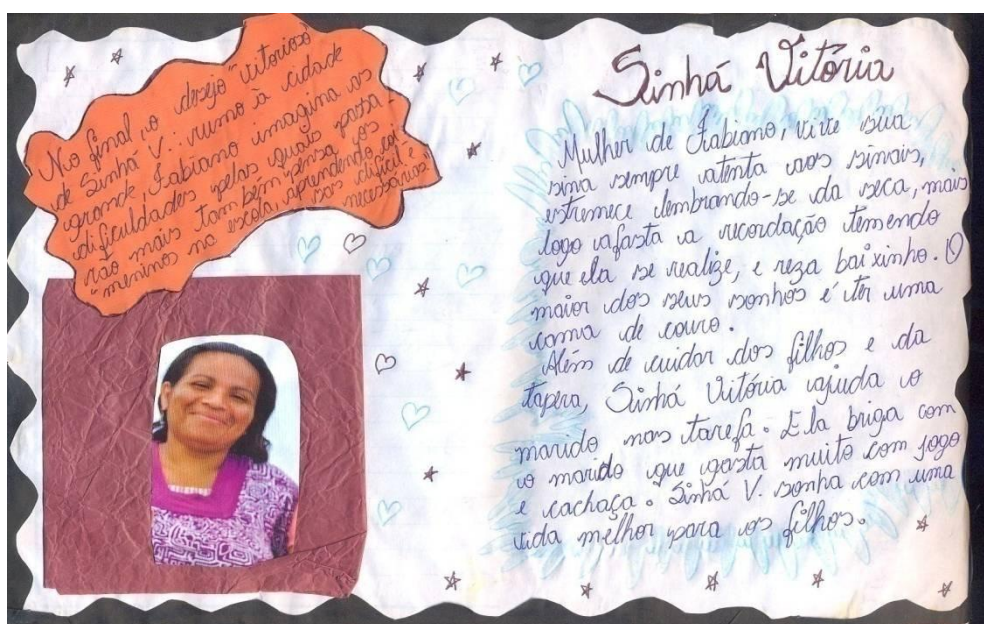 No final o desejo "vitorioso"
de Sinhá V.: rumo à cidade
grande, Fabiano imagina as
dificuldades pelas quais passa-
rão mais também pensa "os
"meninos na escola, aprendendo coi
sas difícil e
necessários"
Sinhá Vitória
Mulher de Fabiano, vive sua
sina sempre atenta aos sinais,
estremece lembrando-se da seca, mais
logo afasta a recordação temendo
que ela se realize, e reza baixinho. O
maior dos seus sonhos é ter uma
cama de couro.
Além de cuidar dos filhos e da
tapera, Sinhá Vitória ajuda o
marido nas tarefa. Ela briga com
o marido que gasta muito com jogo
e cachaça. Sinhá V. sonha com uma
vida melhor para os filhos.